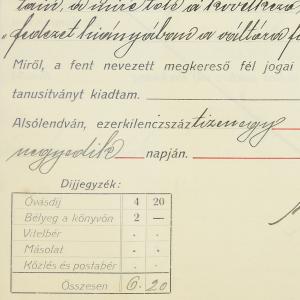 tam, a mire tolt a következő,
"fedezet hiányában a váltóra fi
Miről, a fent nevezett megkereső fél jogai
tanusitványt kiadtam.
Alsólendván, ezerkilenczszáz tizenegy
negyedik napján.
Díjjegyzék:
Óvásdíj 4 20
Bélyeg a könyvön 2 —
Vitelbér . .
Másolat . .
Közlés és postabér . .
Összesen 6. 20